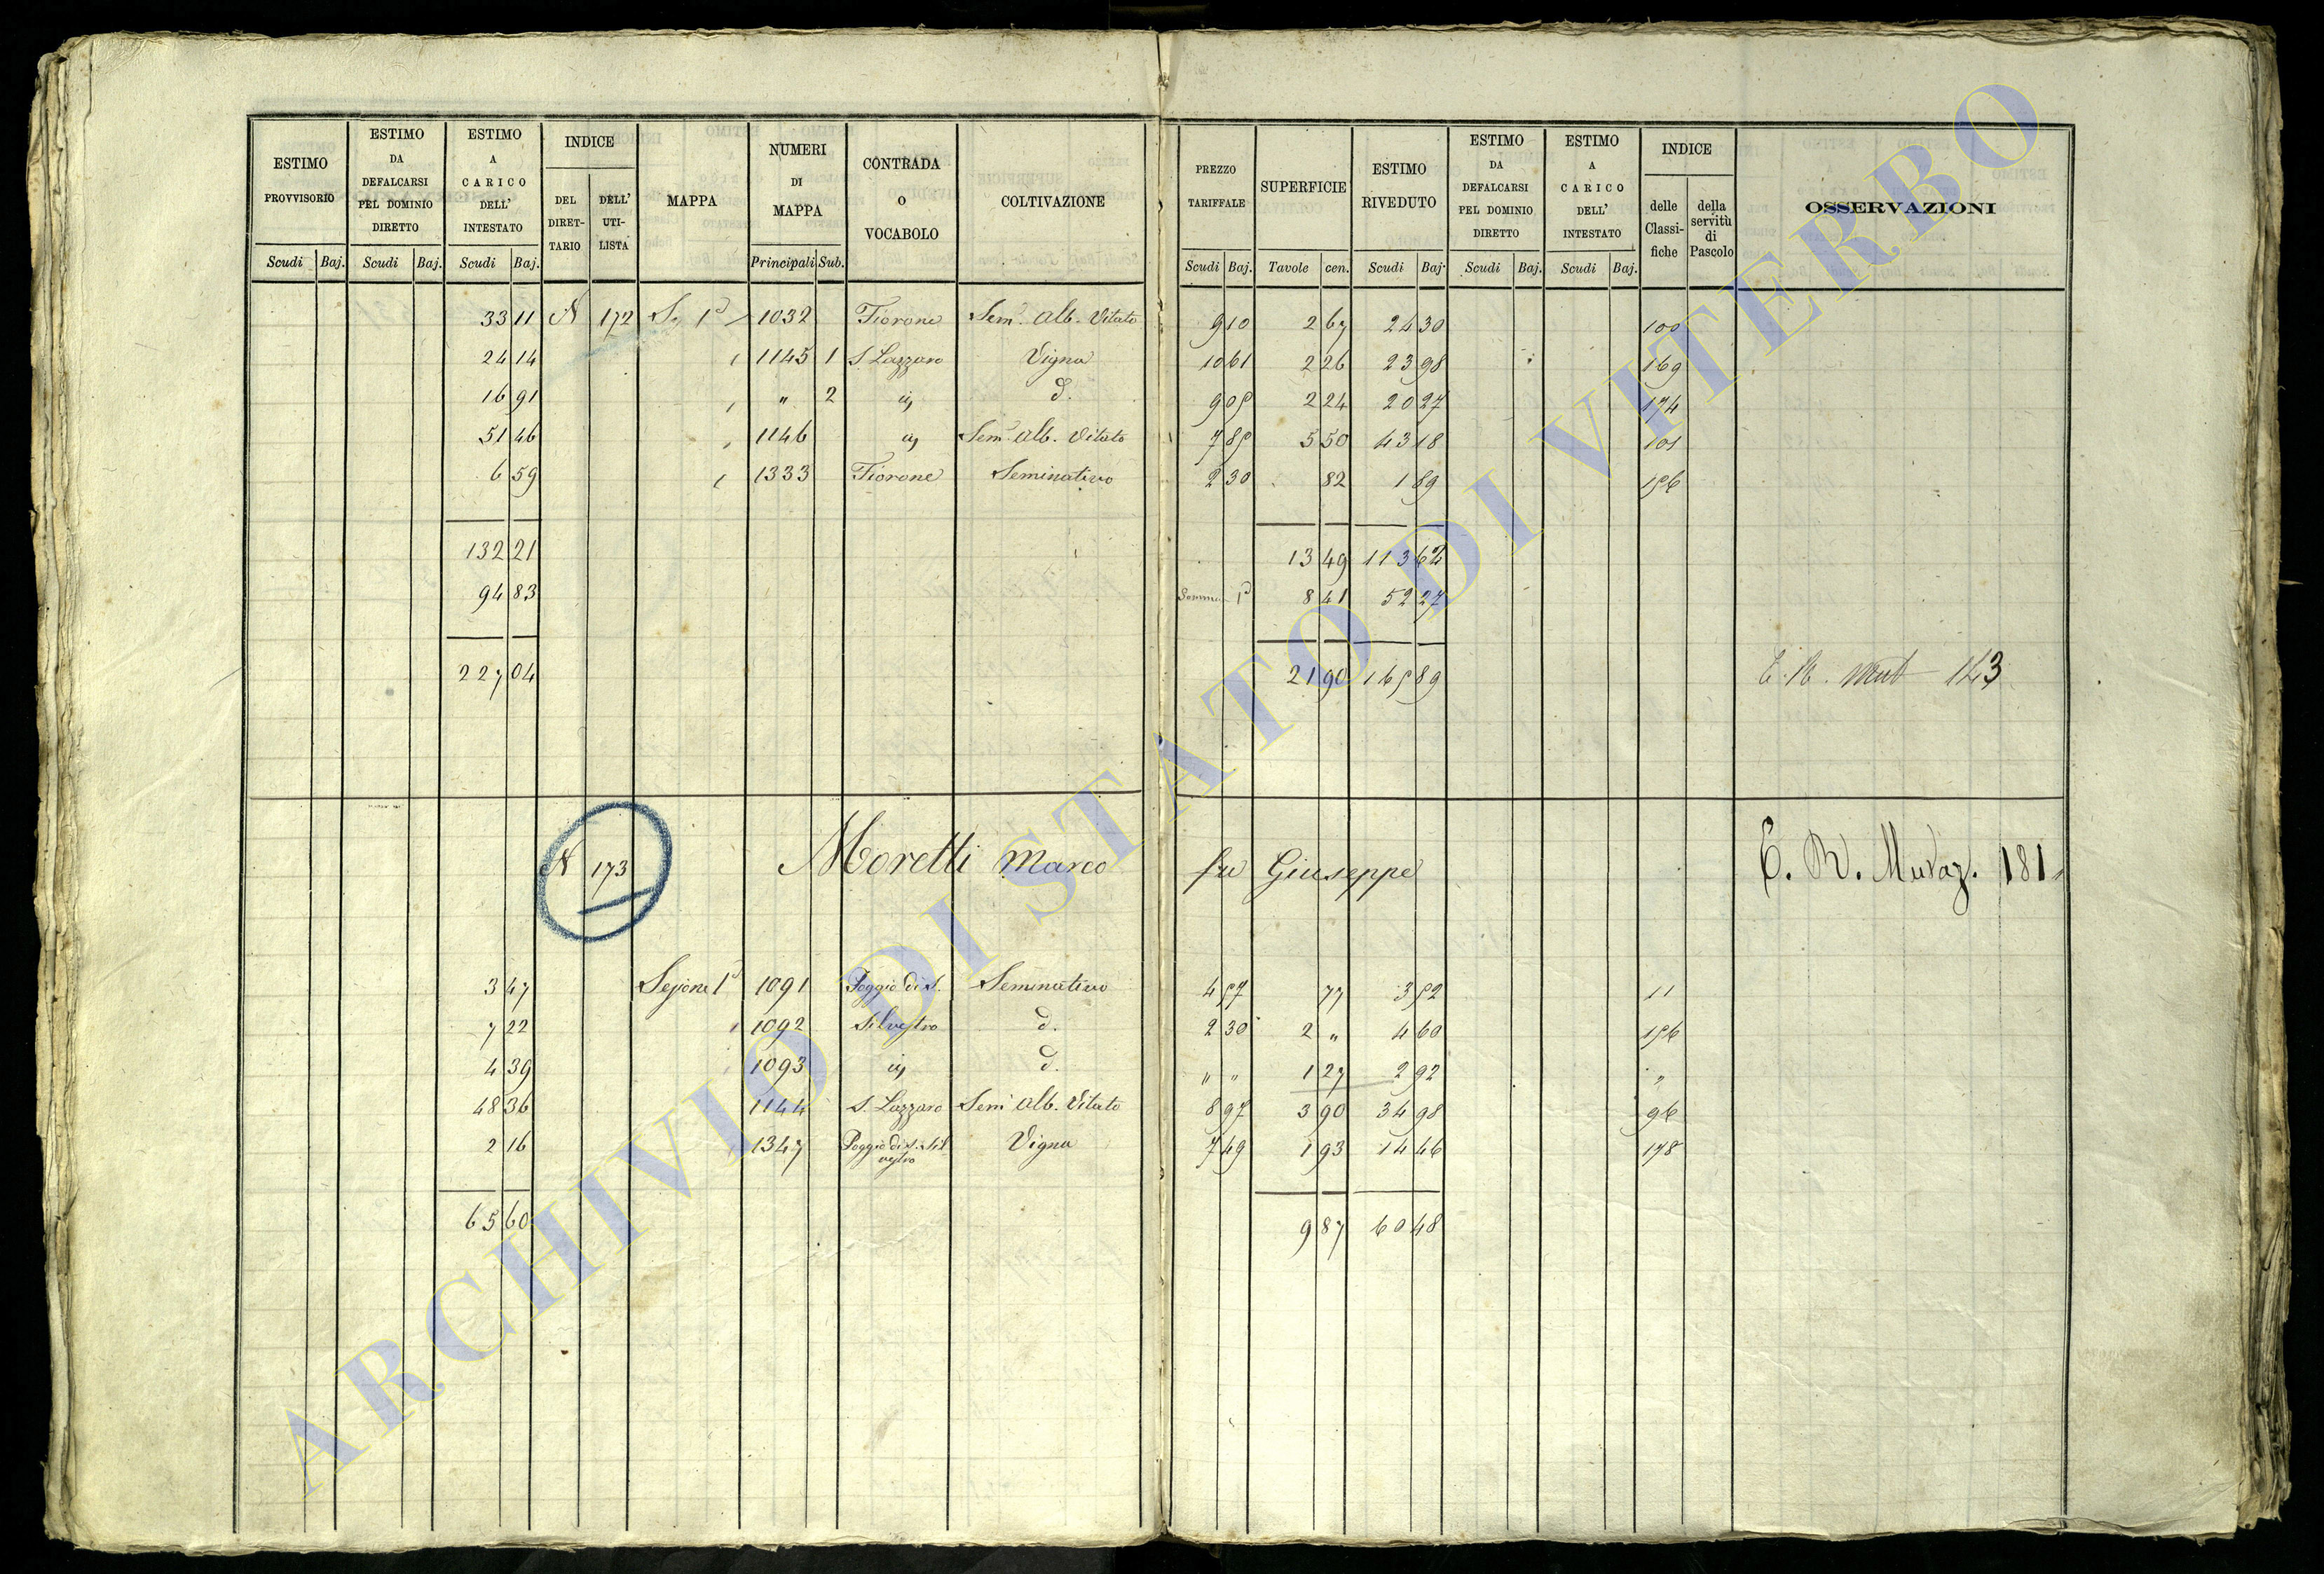 ESTIMO PROVVISORIO
ESTIMO DA DEFALCARSI PEL DOMINIO DIRETTO
ESTIMO A CARICO DELL' INTESTATO
INDICE
DEL DIRET-TARIO
DELL' UTI-LISTA
MAPPA
NUMERI DI MAPPA
CONTRADA O VOCABOLO
COLTIVAZIONE
Scudi Baj. Scudi Baj. Scudi Baj. Principali Sub.
PREZZO TARIFFALE
SUPERFICIE
ESTIMO RIVEDUTO
ESTIMO DA DEFALCARSI PEL DOMINIO DIRETTO
ESTIMO A CARICO DELL' INTESTATO
INDICE
delle Classi-fiche
della servitù di Pascolo
OSSERVAZIONI
Scudi Baj. Tavole cen. Scudi Baj. Scudi Baj. Scudi Baj.
33 11 N 172 1032 Fiorone Sem. Alb. Vitato 9 10 2 67 24 30 100
24 14 1145 1 S. Lazzaro Vigna 10 61 2 26 23 98 169
16 91 " 2 d. 9 05 2 24 20 27 174
51 46 1146 Sem. Alb. Vitato 7 85 5 50 43 18 101
6 59 1333 Fiorone Seminativo 2 30 82 1 89 156
132 21 13 49 113 62
94 83 Somma 8 41 52 27
227 04 21 90 165 89 143
N 173 Moretti Marco fu Giuseppe E. R. 181
3 47 Sezione 1a 1091 Poggio di S. Seminativo 4 57 77 3 52 11
7 22 1092 Silvestro d. 2 30 2 " 4 60 156
4 39 1093 d. " " 1 27 2 92 "
48 36 1144 S. Lazzaro Sem Alb. Vitato 8 97 3 90 34 98 96
2 16 1347 Poggio di S. Sil
vestro Vigna 7 49 1 93 14 46 178
65 60 9 87 60 48
ARCHIVIO DI STATO DI VITERBO